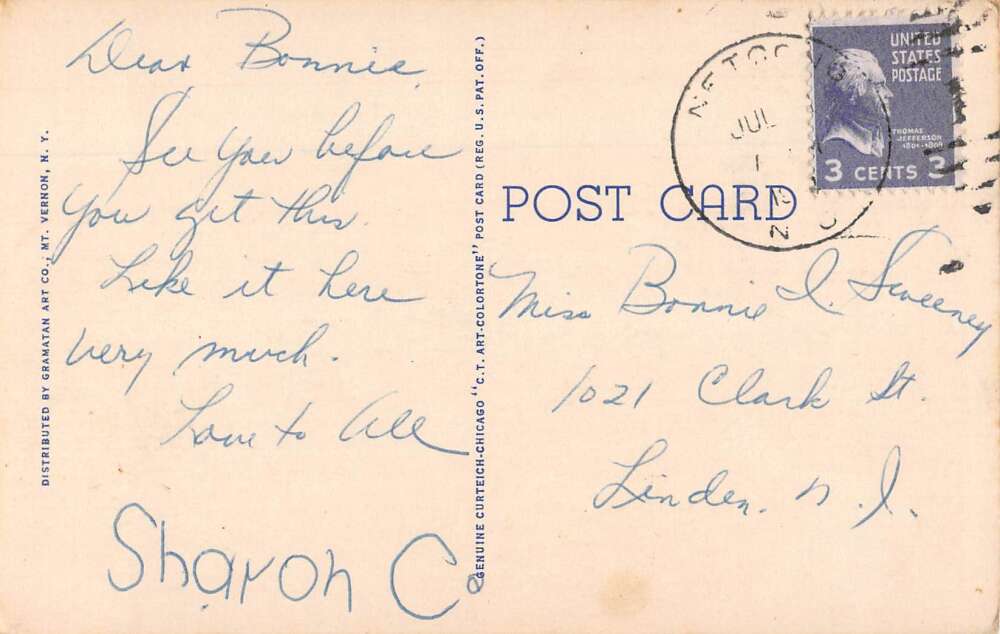 Dear Bonnie
See you before
you get this.
Like it here
very much.
Love to All
Sharon C.
DISTRIBUTED BY GRAMATAN ART CO., MT. VERNON, N. Y.
GENUINE CURTEICH-CHICAGO "C.T. ART-COLORTONE" POST CARD (REG. U. S. PAT. OFF.)
POST CARD
JUL
1
UNITED
STATES
POSTAGE
THOMAS
JEFFERSON
1801-1809
3 CENTS 3
Miss Bonnie I. Sweeney
1021 Clark St.
Linden. N. J.